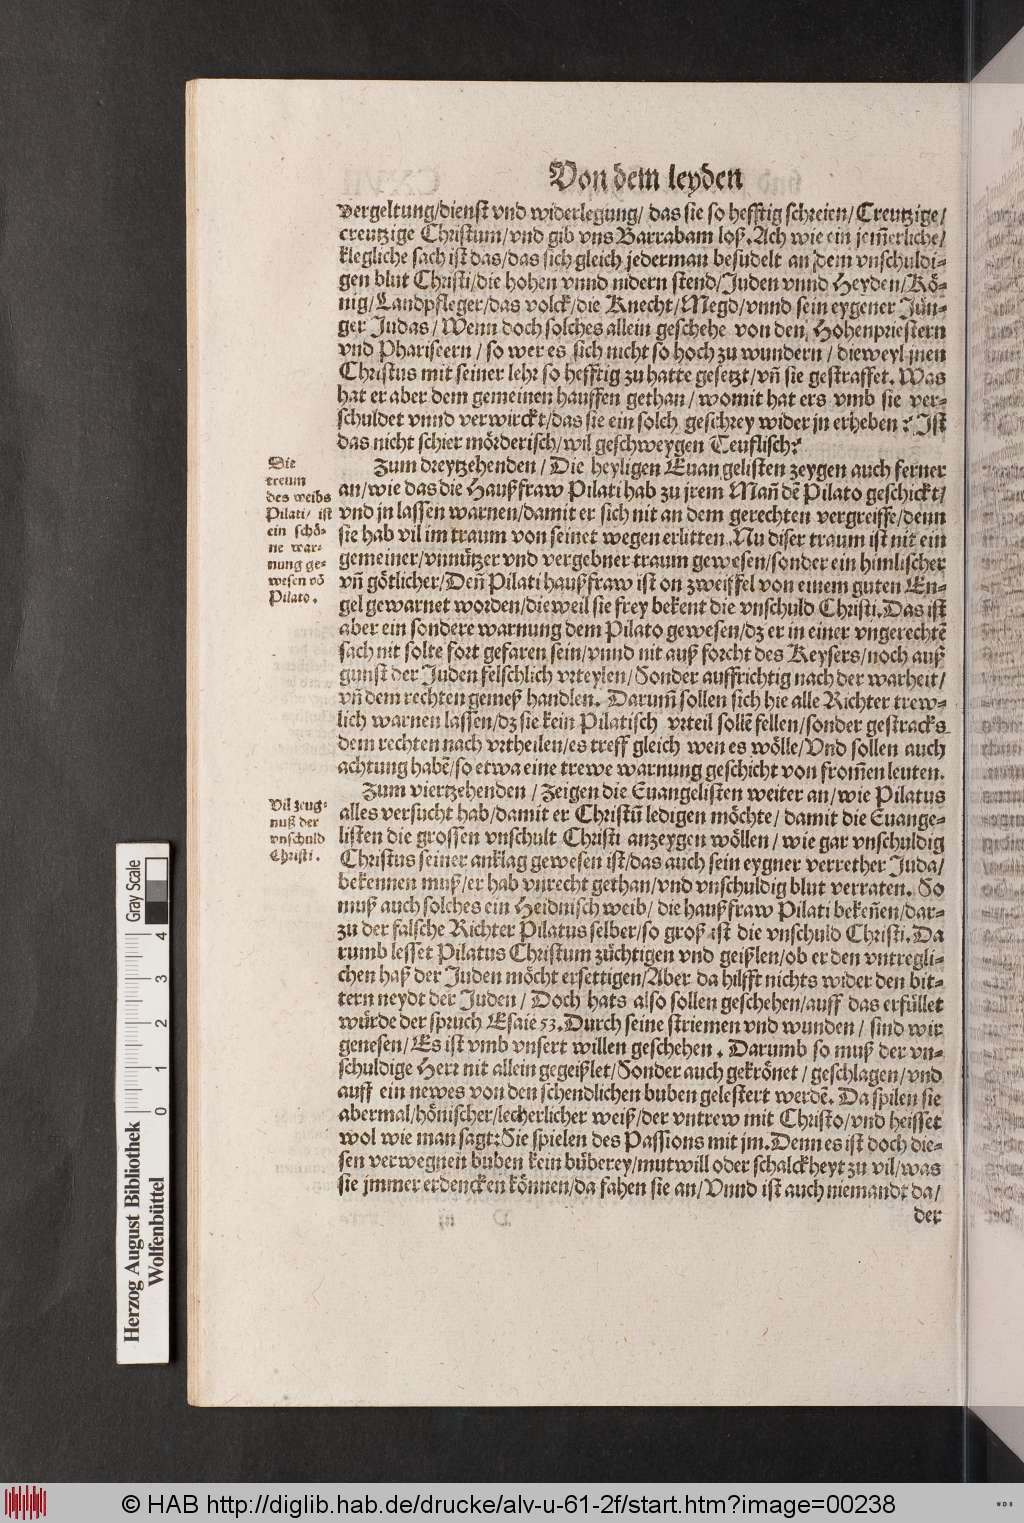 Von dem leyden
vergeltung/dienst vnd widerlegung/ das sie so hefftig schreien/ Creutzige/
creutzige Christum/vnd gib vns Barrabam loß. Ach wie ein jem̃erliche/
klegliche sach ist das/das sich gleich jederman besudelt an dem vnschuldi-
gen blut Christi/die hohen vnnd nidern stend/Juden vnnd Heyden/Kö-
nig/Landpfleger/das volck/die Knecht/Megd/vnnd sein eygener Jün-
ger Judas/ Wenn doch solches allein geschehe von den Hohenpriestern
vnd Phariseern/ so wer es sich nicht so hoch zu wundern/ dieweyl jnen
Christus mit seiner lehr so hefftig zu hatte gesetzt/vñ sie gestraffet. Was
hat er aber dem gemeinen hauffen gethan/ womit hat ers vmb sie ver-
schuldet vnnd verwirckt/das sie ein solch geschrey wider jn erheben? Ist
das nicht schier mörderisch/wil geschweygen Teuflisch?
Die
treum
des weibs
Pilati/ ist
ein schö-
ne war-
nung ge-
wesen võ
Pilato.
Zum dreytzehenden/ Die heyligen Euangelisten zeygen auch ferner
an/wie das die Haußfraw Pilati hab zu jrem Mañ dẽ Pilato geschickt/
vnd jn lassen warnen/damit er sich nit an dem gerechten vergreiffe/denn
sie hab vil im traum von seinet wegen erlitten. Nu diser traum ist nit ein
gemeiner/vnnützer vnd vergebner traum gewesen/sonder ein himlischer
vñ götlicher/Deñ Pilati haußfraw ist on zweiffel von einem guten En-
gel gewarnet worden/dieweil sie frey bekent die vnschuld Christi. Das ist
aber ein sondere warnung dem Pilato gewesen/dz er in einer vngerechtẽ
sach nit solte fort gefaren sein/vnnd nit auß forcht des Keysers/noch auß
gunst der Juden felschlich vrteylen/Sonder auffrichtig nach der warheit/
vñ dem rechten gemeß handlen. Darum̃ sollen sich hie alle Richter trew-
lich warnen lassen/dz sie kein Pilatisch vrteil sollẽ fellen/sonder gestracks
dem rechten nach vrtheilen/es treff gleich wen es wölle/Vnd sollen auch
achtung habẽ/so etwa eine trewe warnung geschicht von from̃en leuten.
Vil zeug-
nuß der
vnschuld
Christi.
Zum viertzehenden/ Zeigen die Euangelisten weiter an/wie Pilatus
alles versucht hab/damit er Christũ ledigen möchte/ damit die Euange-
listen die grossen vnschult Christi anzeygen wöllen/ wie gar vnschuldig
Christus seiner anklag gewesen ist/das auch sein eygner verrether Juda/
bekennen muß/er hab vnrecht gethan/vnd vnschuldig blut verraten. So
muß auch solches ein Heidnisch weib/ die haußfraw Pilati bekeñen/dar-
zu der falsche Richter Pilatus selber/so groß ist die vnschuld Christi. Da
rumb lesset Pilatus Christum züchtigen vnd geißlen/ob er den vntregli-
chen haß der Juden möcht ersettigen/Aber da hilfft nichts wider den bit-
tern neydt der Juden/ Doch hats also sollen geschehen/auff das erfüllet
würde der spruch Esaie 53. Durch seine striemen vnd wunden/ sind wir
genesen/Es ist vmb vnsert willen geschehen. Darumb so muß der vn-
schuldige Herr nit allein gegeißlet/Sonder auch gekrönet/ geschlagen/vnd
auff ein newes von den schendlichen buben gelestert werdẽ. Da spilen sie
abermal/hönischer/lecherlicher weiß/der vntrew mit Christo/vnd heisset
wol wie man sagt: Sie spielen des Passions mit jm. Denn es ist doch die-
sen verwegnen buben kein büberey/mutwill oder schalckheyt zu vil/was
sie jmmer erdencken können/da fahen sie an/Vnnd ist auch niemandt da/
der
Gray Scale
0 1 2 3 4
Herzog August Bibliothek
Wolfenbüttel
© HAB http://diglib.hab.de/drucke/alv-u-61-2f/start.htm?image=00238